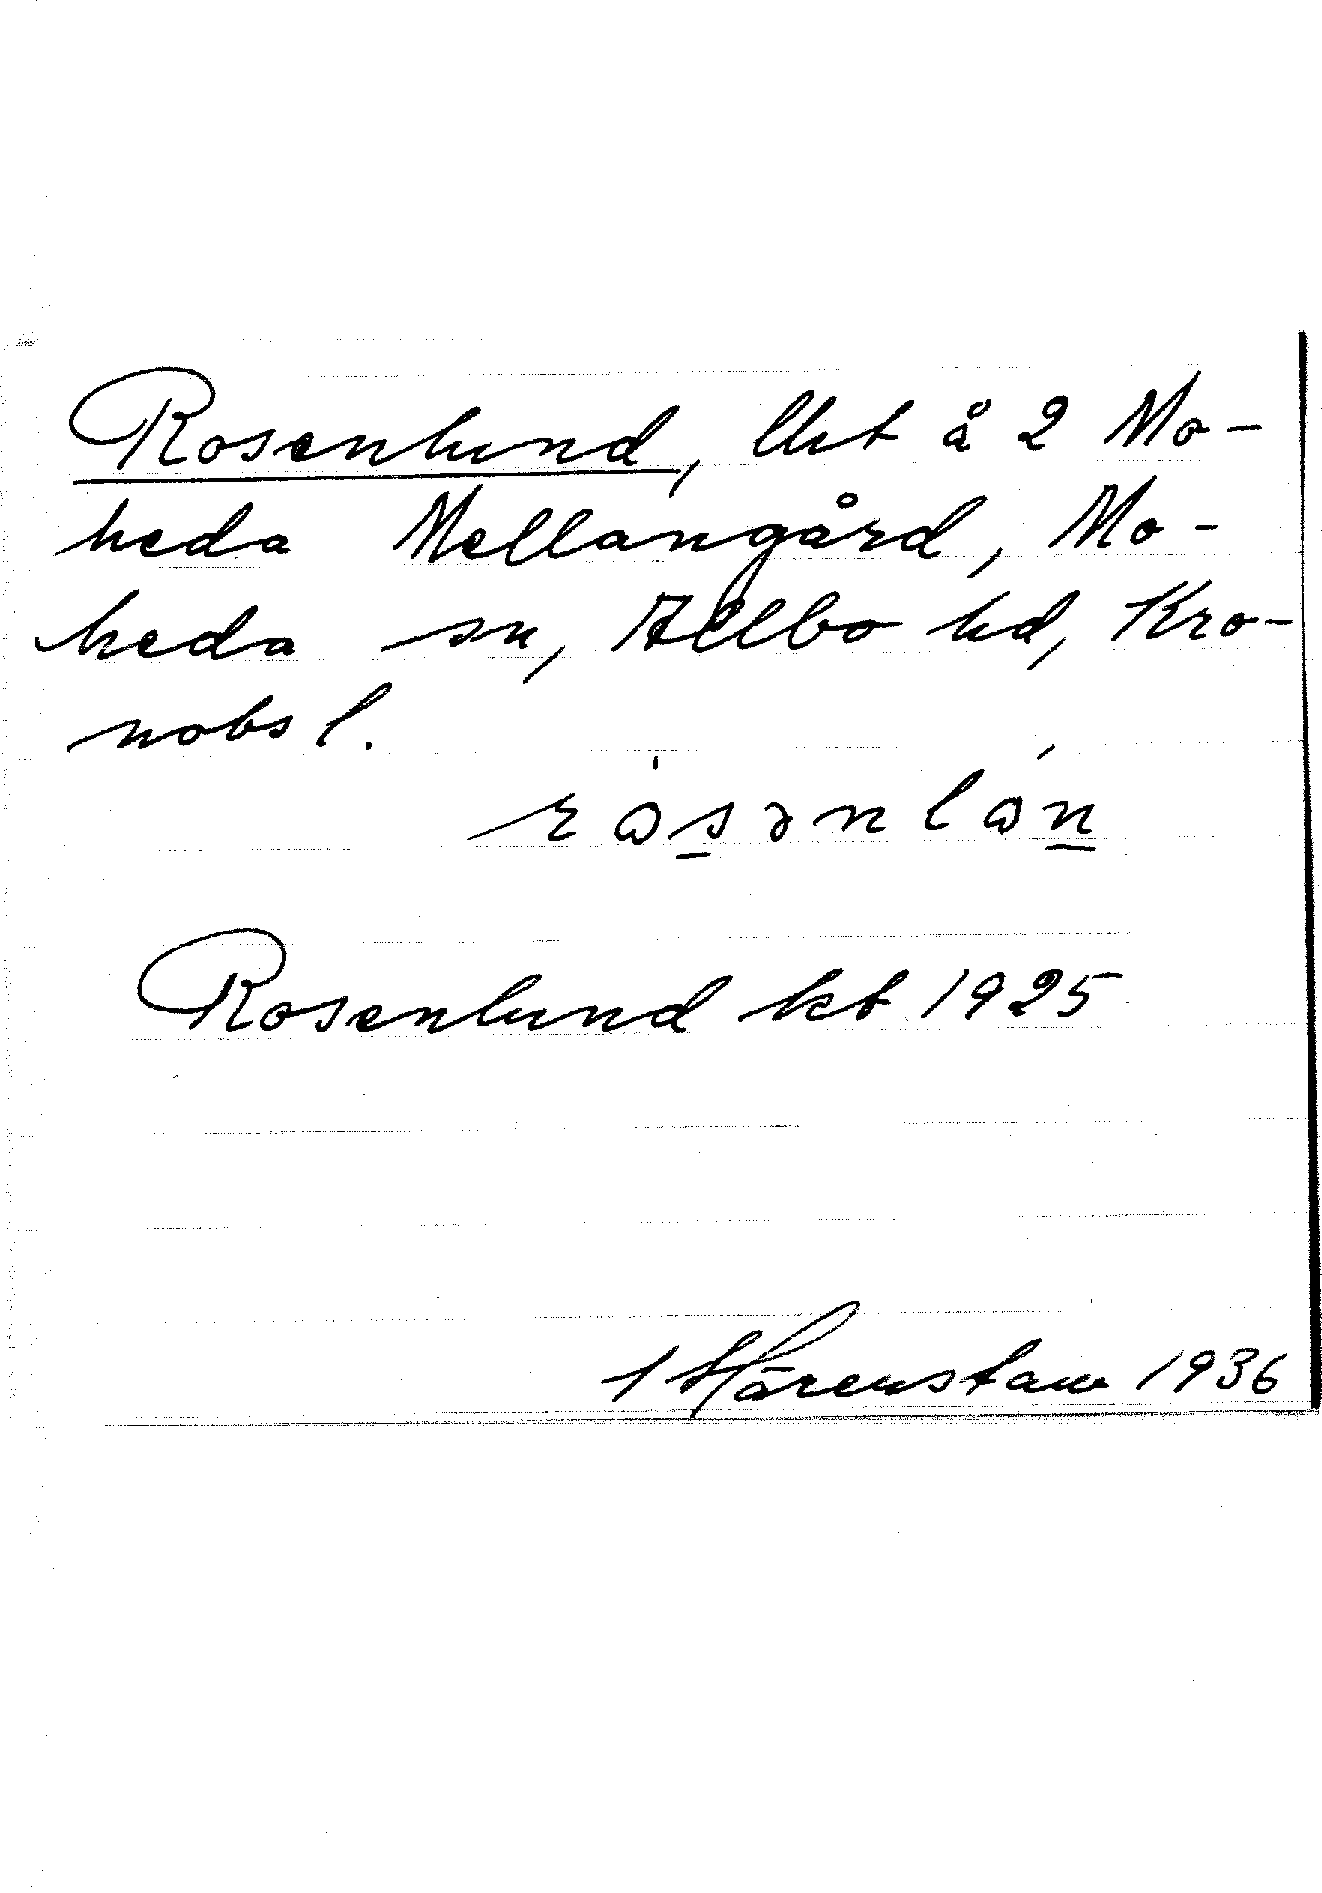 Rosenlund, lht å 2 Mo-
heda Mellangård, Mo-
heda sn, Allbo hd, Kro-
nobs l.
Rosenlund kt 1925
Härenstam 1936